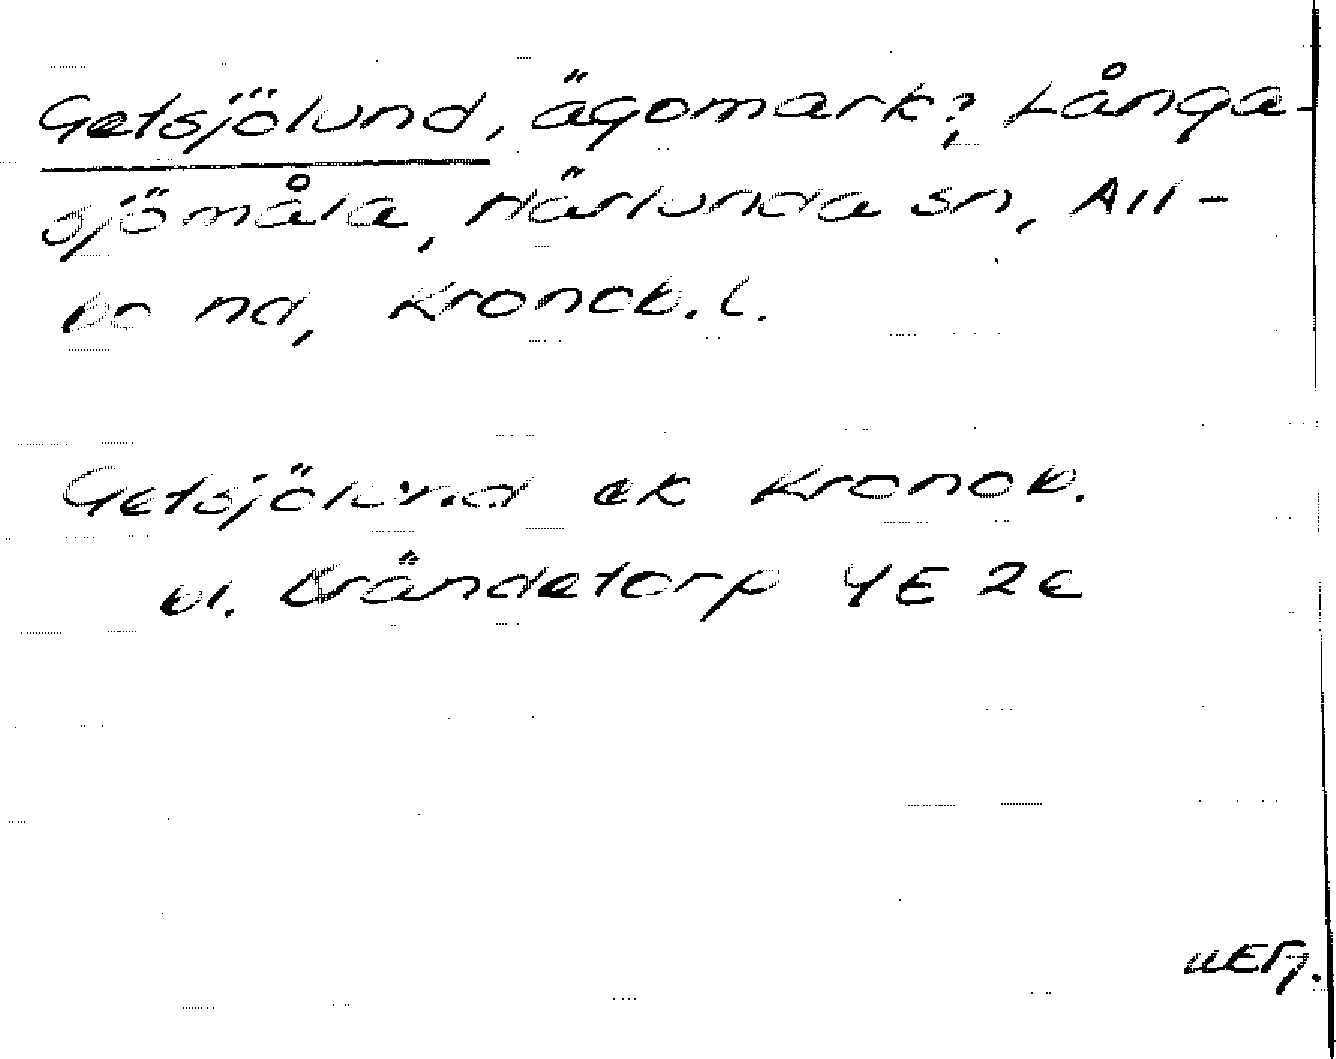 Getsjölund, ägomark?, Långa-
sjömåla, Härlunda sn, All-
bo hd, Kronob. l.
Getsjölund ek Kronob.
bl. Brändetorp 4E 2c